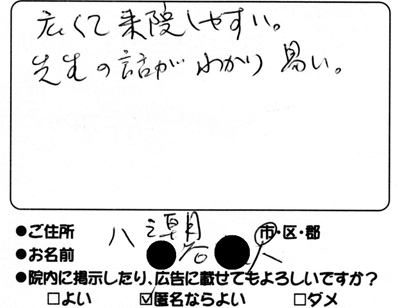 広くて来院しやすい。
先生の話がわかり易い。
●ご住所 八潮 市・区・郡
●お名前
●院内に掲示したり、広告に載せてもよろしいですか？
□よい ☑匿名ならよい □ダメ